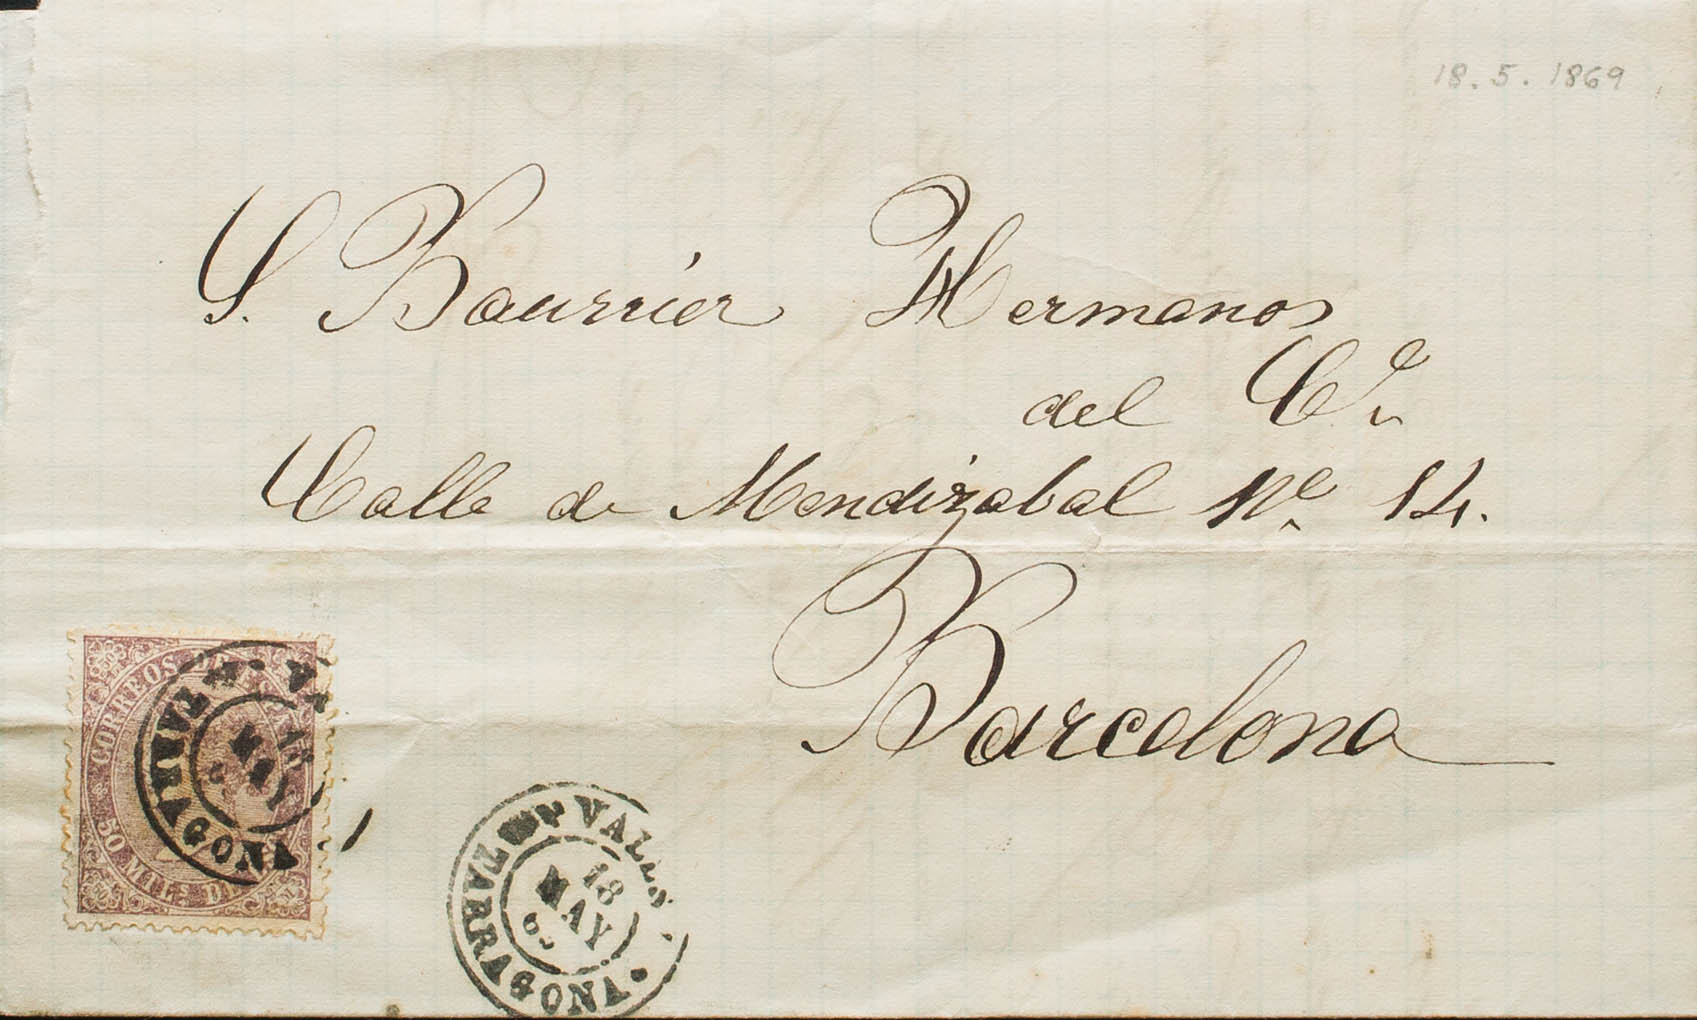 18.5.1869
S. Bourrier Hermanos
del C.º
Calle de Mendizabal Nº 14.
Barcelona
CORREOS
50 MILS. DE
TARRAGONA
18
MAY
VALLS
18
MAY
6
TARRAGONA